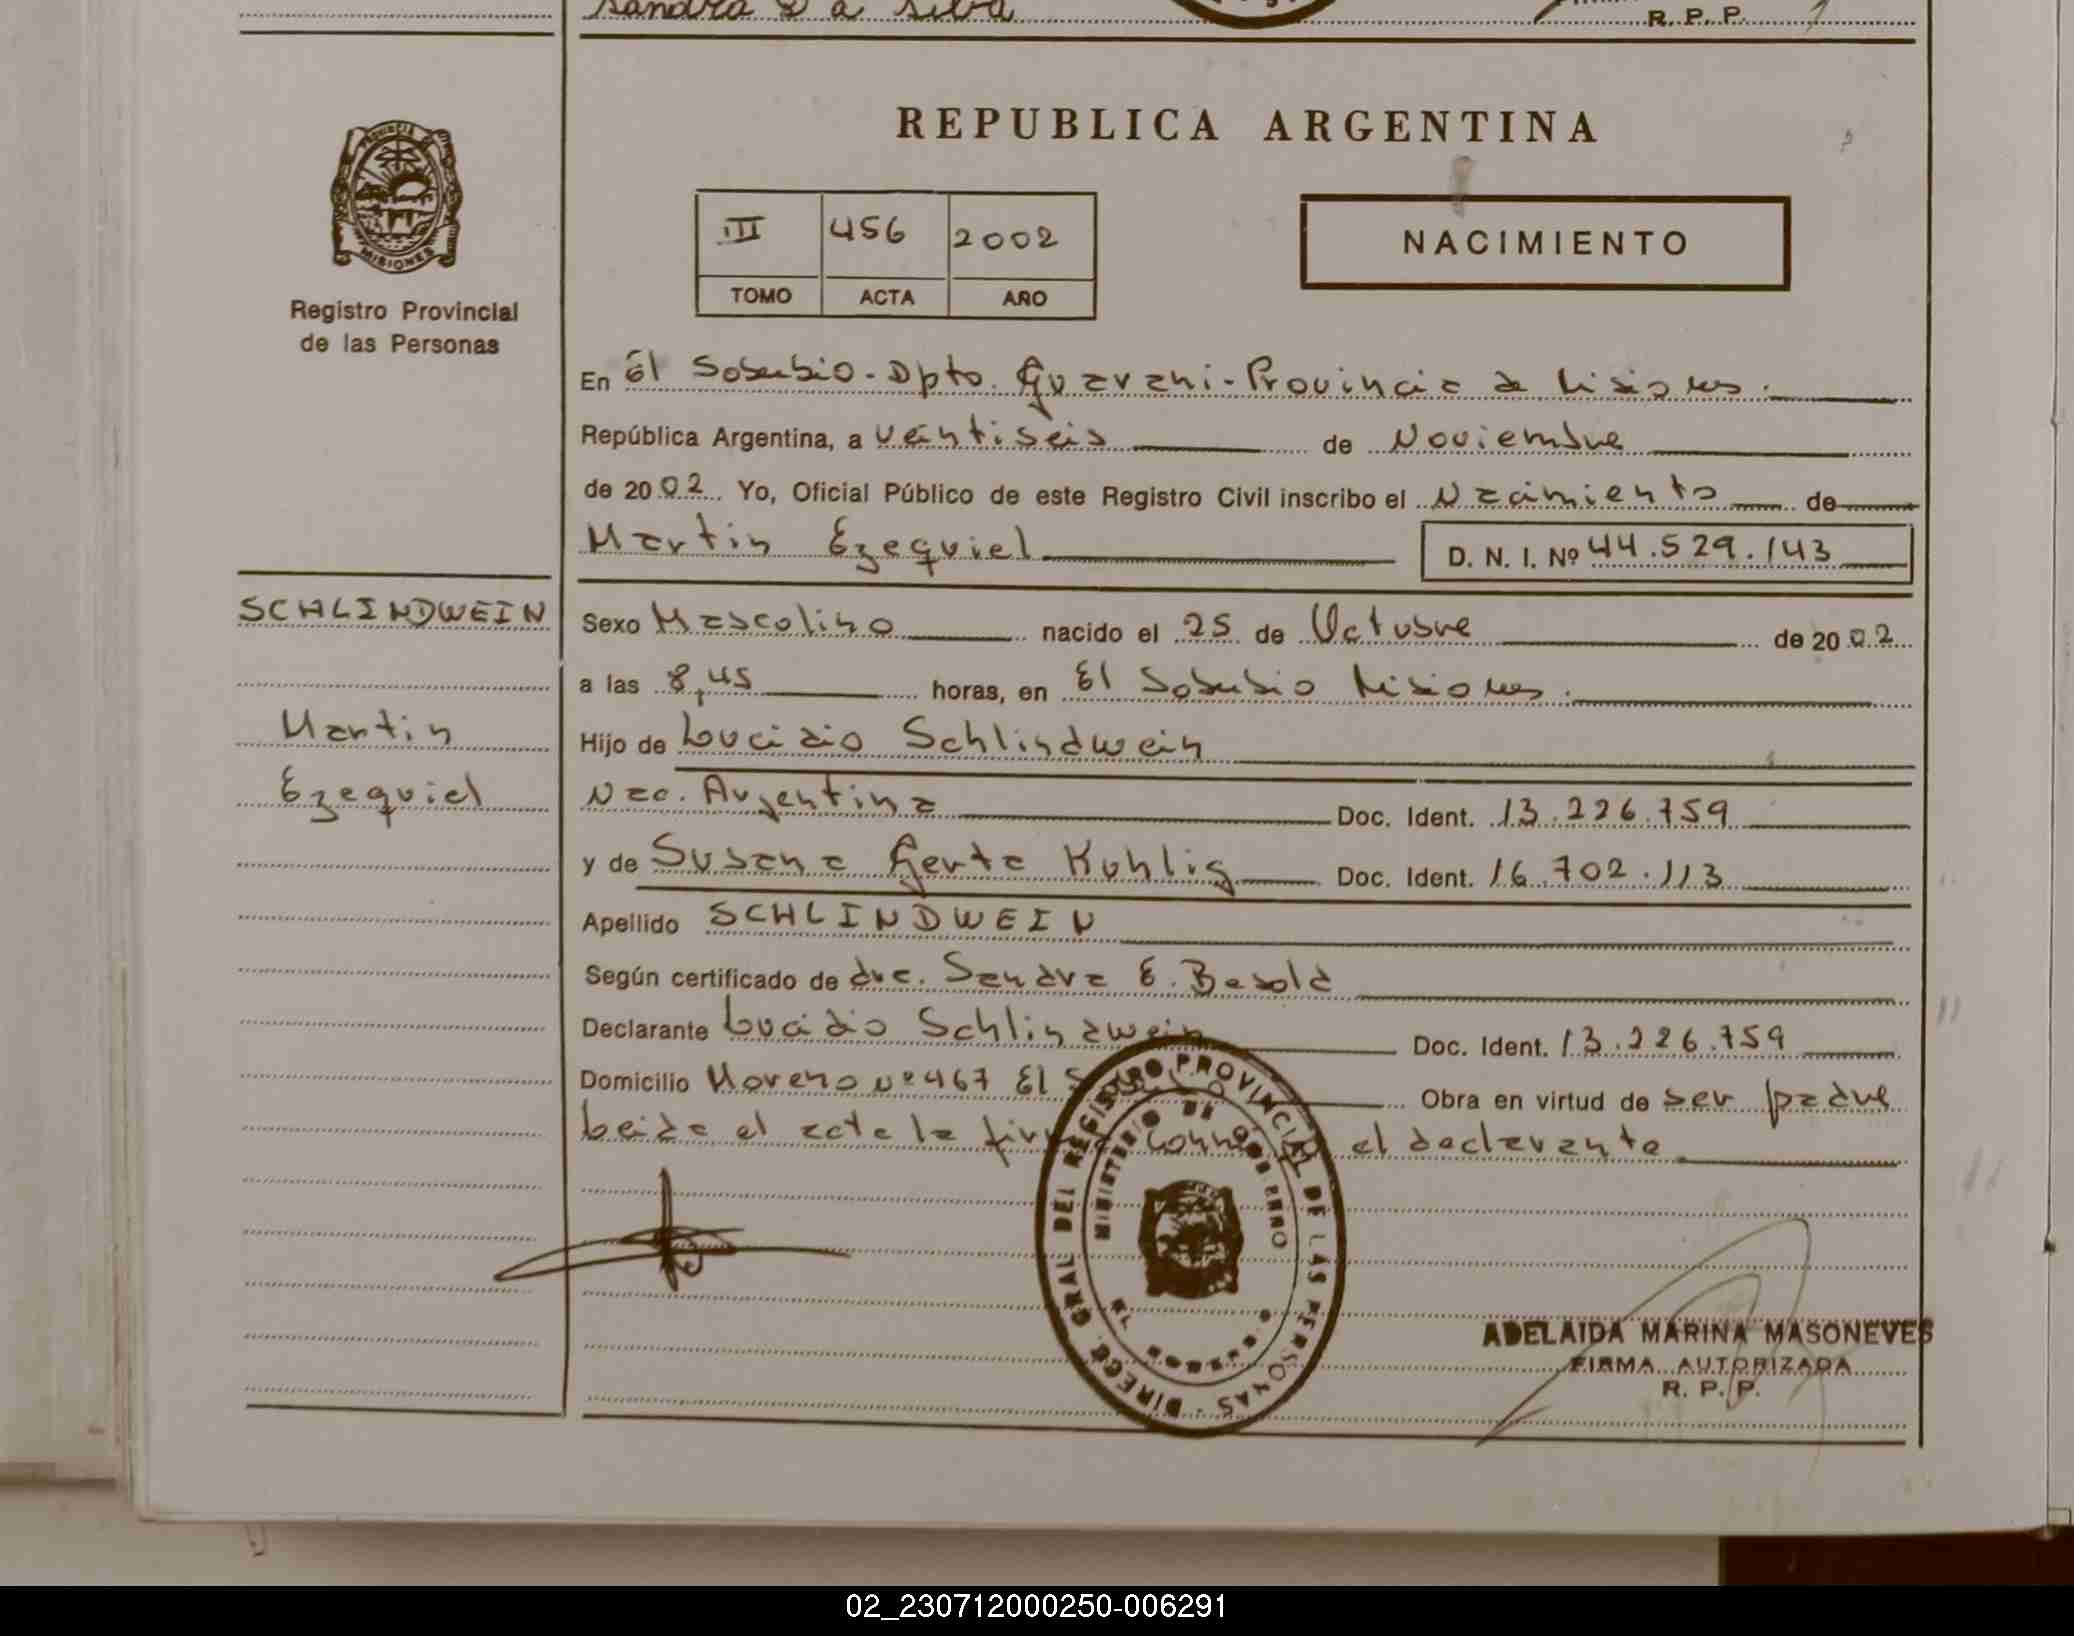 Sandra Da Silva
R. P. P.
PROVINCIA
MISIONES
Registro Provincial
de las Personas
REPUBLICA ARGENTINA
III 456 2002
TOMO ACTA AÑO
NACIMIENTO
En El Soberbio - Dpto. Guarani - Provincia de Misiones.
República Argentina, a veintiseis de Noviembre
de 2002 Yo, Oficial Público de este Registro Civil inscribo el Nacimiento de
Martin Ezequiel D. N. I. Nº 44.529.143
SCHLINDWEIN
Martin
Ezequiel
Sexo Masculino nacido el 25 de Octubre de 2002
a las 8,45 horas, en El Soberbio Misiones.
Hijo de Lucidio Schlindwein
Nac. Argentina Doc. Ident. 13.226.759
y de Susana Gerta Kuhlig Doc. Ident. 16.702.113
Apellido SCHLINDWEIN
Según certificado de dra. Sandra E. Besold
Declarante Lucidio Schlindwein Doc. Ident. 13.226.759
Domicilio Moreno nº 467 El Obra en virtud de ser padre
Leida el acta la firma el declarante
DIRECC. GRAL DEL REGISTRO PROVINCIAL DE LAS PERSONAS
MINISTERIO DE GOBIERNO
ADELAIDA MARINA MASONEVES
FIRMA AUTORIZADA
R. P. P.
02_230712000250-006291